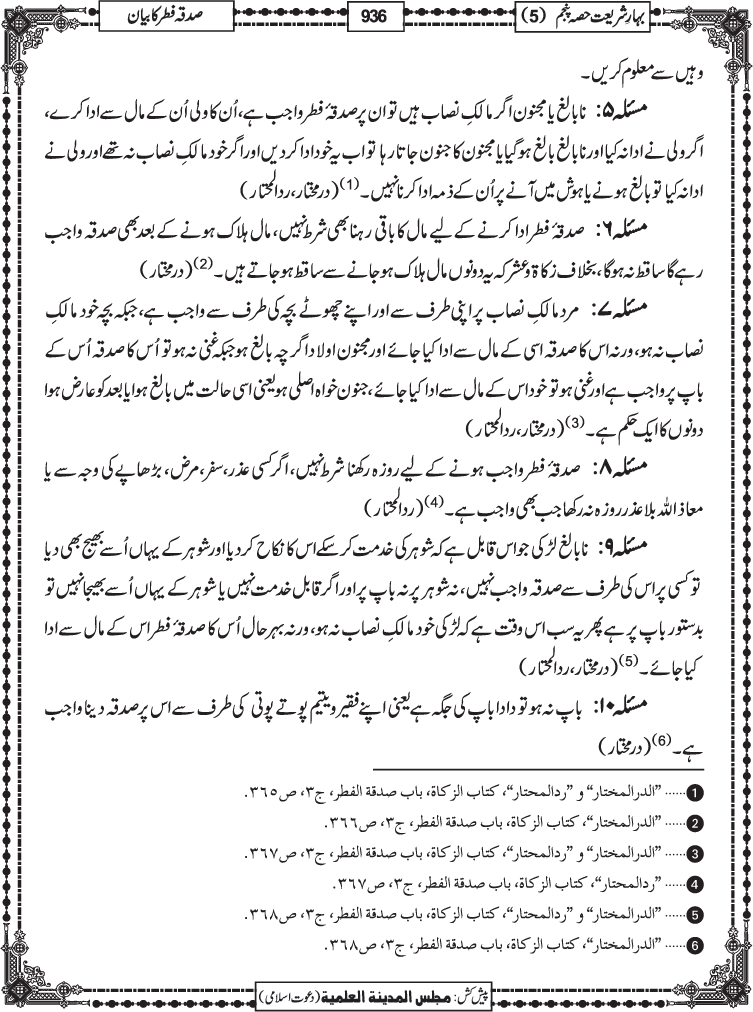 بہارِ شریعت حصہ پنجم (5)
936
صدقہ فطر کا بیان
وہیں سے معلوم کریں۔
مسئلہ ۵: نابالغ یا مجنون اگر مالکِ نصاب ہیں تو ان پر صدقۂ فطر واجب ہے، اُن کا ولی اُن کے مال سے ادا کرے،
اگر ولی نے ادا نہ کیا اور نابالغ بالغ ہوگیا یا مجنون کا جنون جاتا رہا تو اب یہ خود ادا کردیں اور اگر خود مالکِ نصاب نہ تھے اور ولی نے
ادا نہ کیا تو بالغ ہونے یا ہوش میں آنے پر اُن کے ذمہ ادا کرنا نہیں۔(1) (درمختار، ردالمحتار)
مسئلہ ۶: صدقۂ فطر ادا کرنے کے لیے مال کا باقی رہنا بھی شرط نہیں، مال ہلاک ہونے کے بعد بھی صدقہ واجب
رہے گا ساقط نہ ہوگا، بخلاف زکاۃ و عشر کہ یہ دونوں مال ہلاک ہو جانے سے ساقط ہو جاتے ہیں۔(2) (درمختار)
مسئلہ ۷: مرد مالکِ نصاب پر اپنی طرف سے اور اپنے چھوٹے بچہ کی طرف سے واجب ہے، جبکہ بچہ خود مالکِ
نصاب نہ ہو، ورنہ اس کا صدقہ اسی کے مال سے ادا کیا جائے اور مجنون اولاد اگرچہ بالغ ہو جبکہ غنی نہ ہو تو اُس کا صدقہ اُس کے
باپ پر واجب ہے اور غنی ہو تو خود اس کے مال سے ادا کیا جائے، جنون خواہ اصلی ہو یعنی اسی حالت میں بالغ ہوا یا بعد کو عارض ہوا
دونوں کا ایک حکم ہے۔(3) (درمختار، ردالمحتار)
مسئلہ ۸: صدقۂ فطر واجب ہونے کے لیے روزہ رکھنا شرط نہیں، اگر کسی عذر، سفر، مرض، بڑھاپے کی وجہ سے یا
معاذ اللہ بلا عذر روزہ نہ رکھا جب بھی واجب ہے۔(4) (ردالمحتار)
مسئلہ ۹: نابالغ لڑکی جو اس قابل ہے کہ شوہر کی خدمت کر سکے اس کا نکاح کردیا اور شوہر کے یہاں اُسے بھیج بھی دیا
تو کسی پر اس کی طرف سے صدقہ واجب نہیں، نہ شوہر پر نہ باپ پر اور اگر قابل خدمت نہیں یا شوہر کے یہاں اُسے بھیجا نہیں تو
بدستور باپ پر ہے پھر یہ سب اس وقت ہے کہ لڑکی خود مالکِ نصاب نہ ہو، ورنہ بہرحال اُس کا صدقۂ فطر اس کے مال سے ادا
کیا جائے۔(5) (درمختار، ردالمحتار)
مسئلہ ۱۰: باپ نہ ہو تو دادا باپ کی جگہ ہے یعنی اپنے فقیر و یتیم پوتے پوتی کی طرف سے اس پر صدقہ دینا واجب
ہے۔(6) (درمختار)
1 ...... ”الدرالمختار“ و ”ردالمحتار“، کتاب الزکاۃ، باب صدقۃ الفطر، ج۳، ص۳۶۵.
2 ...... ”الدرالمختار“، کتاب الزکاۃ، باب صدقۃ الفطر، ج۳، ص۳۶۶.
3 ...... ”الدرالمختار“ و ”ردالمحتار“، کتاب الزکاۃ، باب صدقۃ الفطر، ج۳، ص۳۶۷.
4 ...... ”ردالمحتار“، کتاب الزکاۃ، باب صدقۃ الفطر، ج۳، ص۳۶۷.
5 ...... ”الدرالمختار“ و ”ردالمحتار“، کتاب الزکاۃ، باب صدقۃ الفطر، ج۳، ص۳۶۸.
6 ...... ”الدرالمختار“، کتاب الزکاۃ، باب صدقۃ الفطر، ج۳، ص۳۶۸.
پیش کش: مجلس المدینۃ العلمیۃ (دعوت اسلامی)